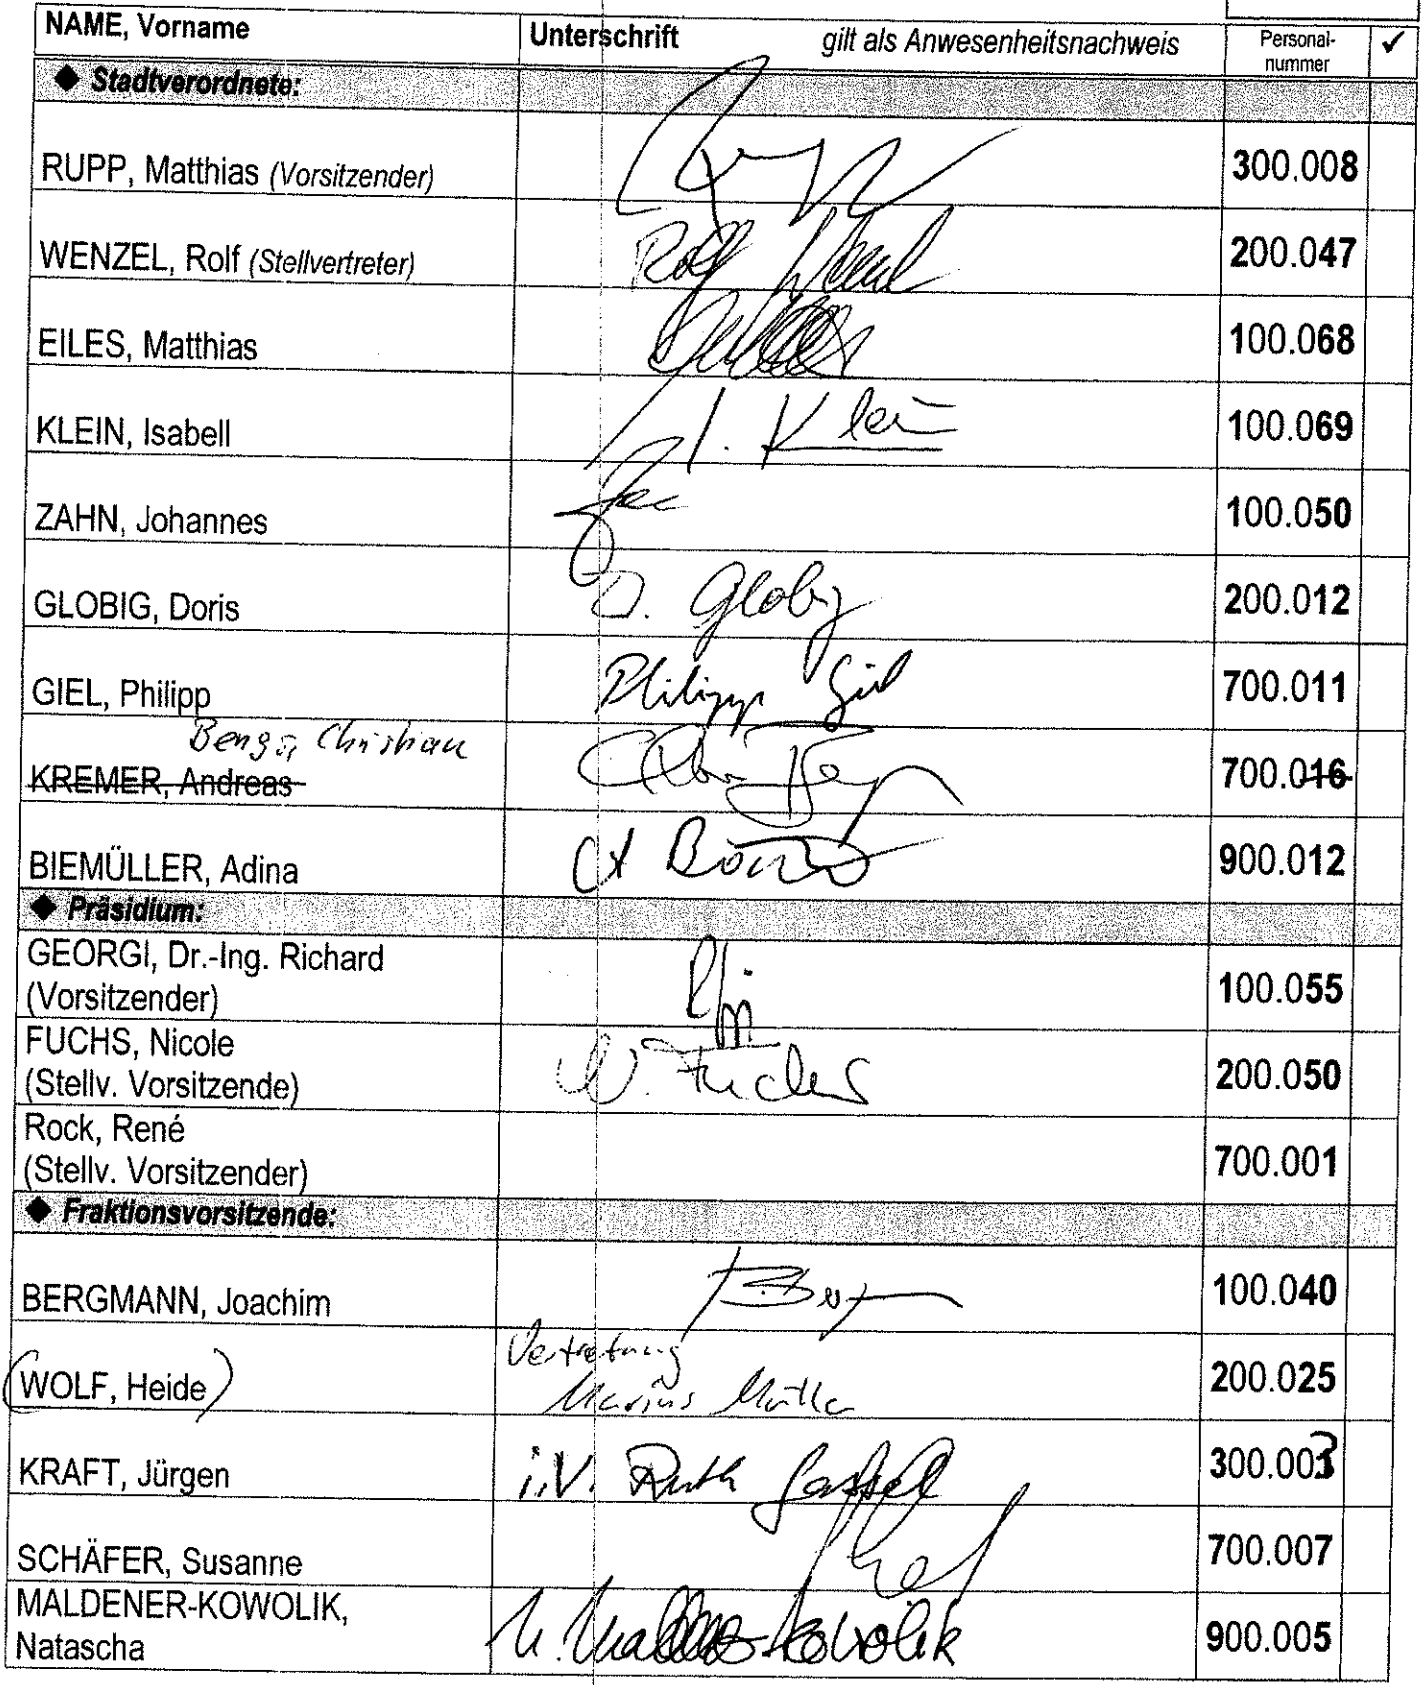 NAME, Vorname Unterschrift gilt als Anwesenheitsnachweis Personal-nummer ✓
◆ Stadtverordnete:
RUPP, Matthias (Vorsitzender) 300.008
WENZEL, Rolf (Stellvertreter) Rolf Wenzel 200.047
EILES, Matthias 100.068
KLEIN, Isabell I. Klein 100.069
ZAHN, Johannes 100.050
GLOBIG, Doris D. Globig 200.012
GIEL, Philipp Philipp Giel 700.011
Christian
KREMER, Andreas 700.016
BIEMÜLLER, Adina 900.012
◆ Präsidium:
GEORGI, Dr.-Ing. Richard
(Vorsitzender) 100.055
FUCHS, Nicole
(Stellv. Vorsitzende) N. Fuchs 200.050
Rock, René
(Stellv. Vorsitzender) 700.001
◆ Fraktionsvorsitzende:
BERGMANN, Joachim 100.040
Vertretung
(WOLF, Heide) Marius Müller 200.025
KRAFT, Jürgen i.V. Ruth 300.003
SCHÄFER, Susanne 700.007
MALDENER-KOWOLIK,
Natascha N. Maldener-Kowolik 900.005